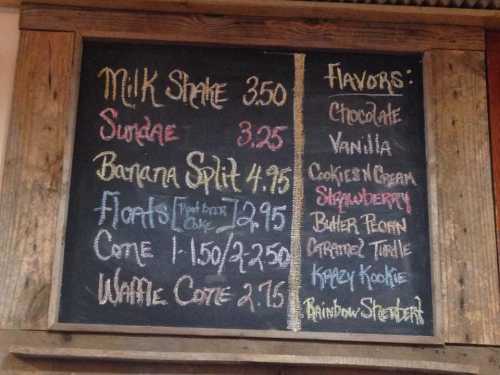 Milk Shake 3.50
Sundae 3.25
Banana Split 4.95
Floats [Root beer Coke] 2.95
Cone 1-1.50/2-2.50
Waffle Cone 2.75
Flavors:
Chocolate
Vanilla
Cookies N Cream
Strawberry
Butter Pecan
Caramel Turtle
Krazy Kookie
Rainbow Sherbert